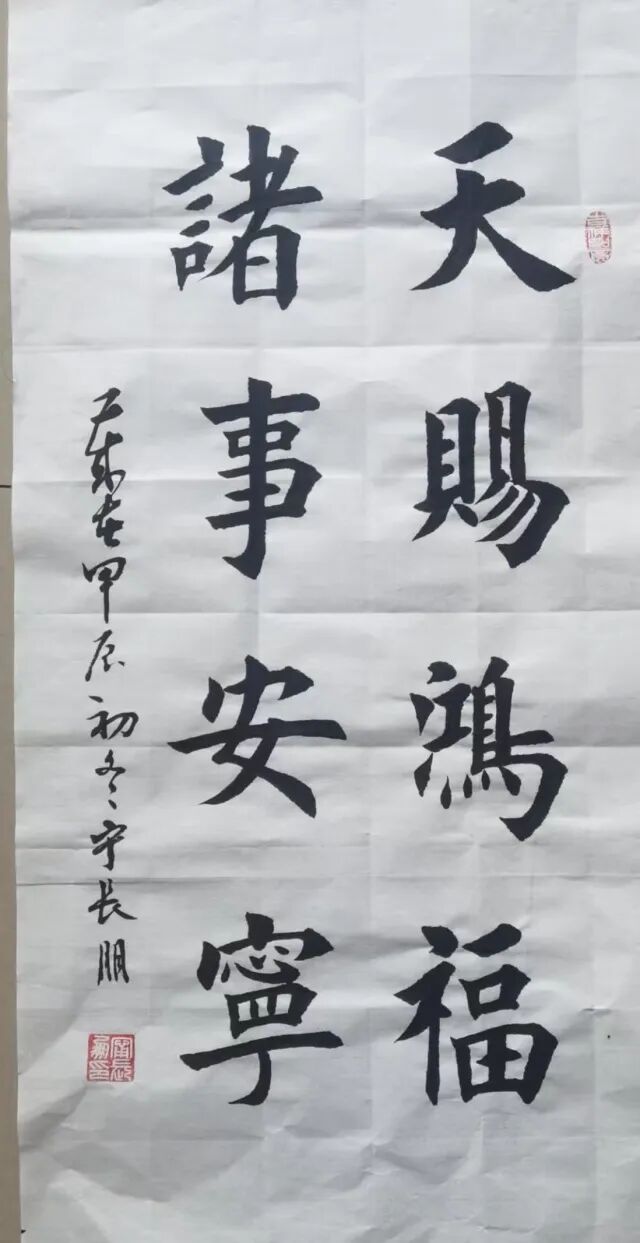 天賜鴻福
諸事安寧
歲在甲辰初冬宁長朋